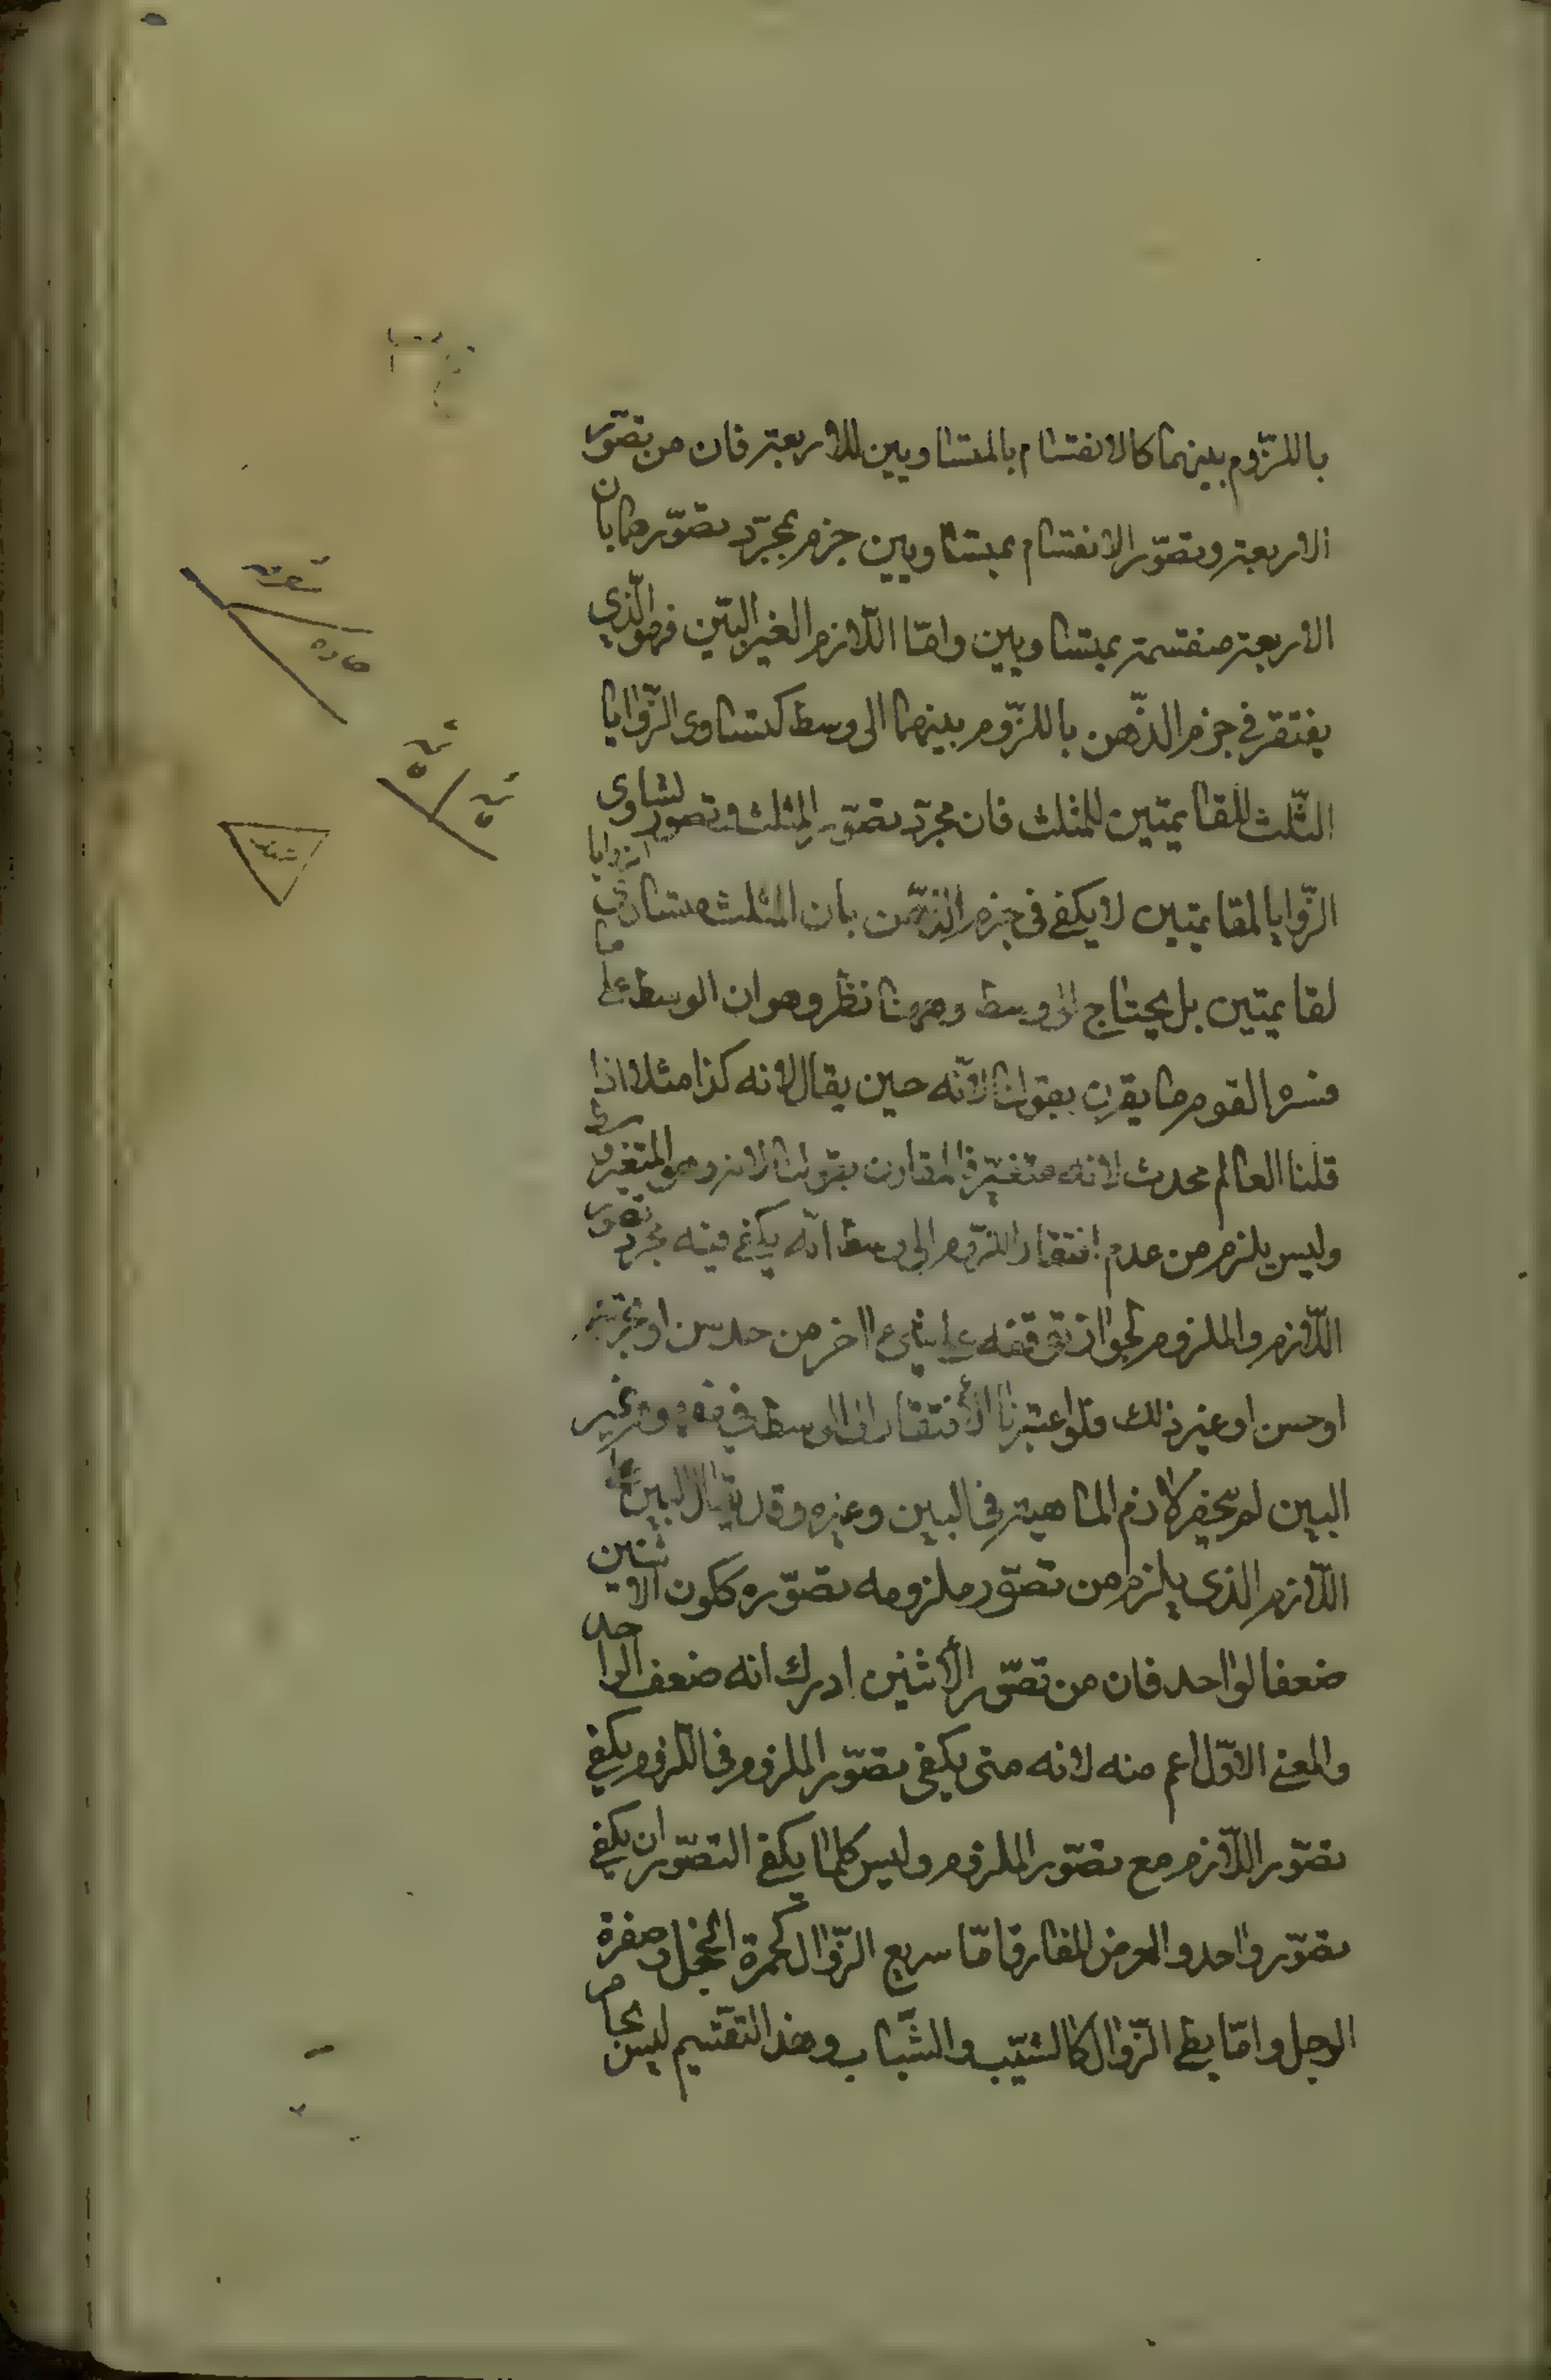 باللزّوم بينهما كالانقسام بالمتساويين للاربعة فان من تصوّر
الاربعة وتصوّر الانقسام بمتساويين جزم بمجرّد تصوّرهما بان
الاربعة منقسمة بمتساويين وامّا اللّازم الغير البيّن فهو الّذي
يفتقر في جزم الذّهن باللزّوم بينهما الى وسط كتساوى الزّوايا
الثّلث للقايمتين للمثلث فان مجرّد تصوّر المثلث وتصور تساوى
الزّوايا لقايمتين لا يكفى فى جزم الذّهن بان المثلث متساوى الزوايا
لقايمتين بل يحتاج الى وسط وههنا نظر وهو ان الوسط على ما
فسره القوم ما يقرن بقولنا لانّه حين يقال لانه كذا مثلا اذا
قلنا العالم محدث لانه متغيّر فالمقارن بقولنا لانه وهو المتغير وسط
وليس يلزم من عدم افتقار اللزّوم الى وسط انّه يكفى فيه مجرّد تصور
اللّازم والملزوم لجواز توقفه على شىء اخر من حدس او تجربة
او حس او غير ذلك فلو اعتبرنا الأفتقار الى الوسط فى مفهوم غير
البين لم ينحصر لازم الماهية فى البين وغيره وقد يقال البين على
اللّازم الذى يلزم من تصوّر ملزومه تصوّره ككون الاثنين
ضعفا لواحد فان من تصّور الأثنين ادرك انه ضعف الواحد
والمعنى الاوّل اعم منه لانه متى يكفى تصوّر الملزوم فى اللزوم يكفى
تصوّر اللّازم مع تصوّر الملزوم وليس كلما يكفى التصوّران يكفى
تصوّر واحد والعرض المفارق امّا سريع الزّوال كحمرة الخجل وصفرة
الوجل وامّا بطى الزّوال كالشيّب والشّباب وهذا التقسيم ليس بحاصر
حاده